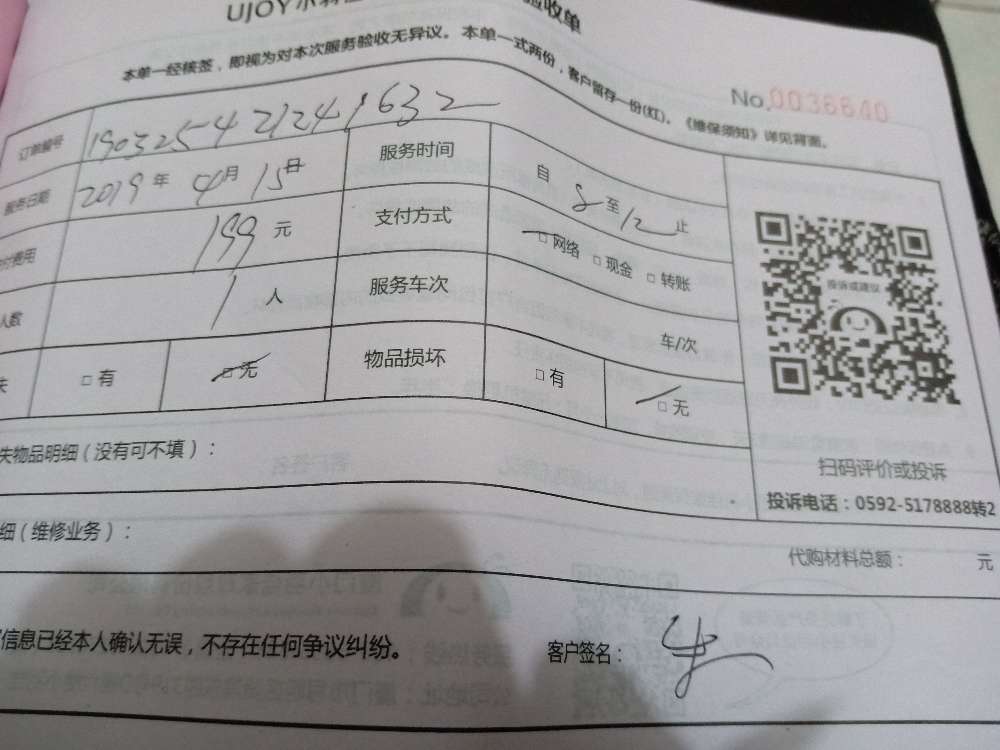 UJOY
验收单
本单一经核签，即视为对本次服务验收无异议。本单一式两份，客户留存一份(红)。《维保须知》详见背面。
No.0036640
订单编号 190325421241632
服务日期 2019年4月15日 服务时间 自8至12止
付费用 199元 支付方式 □网络 □现金 □转账
人数 1人 服务车次 车/次
失 □有 □无 物品损坏 □有 □无
投诉或建议
扫码评价或投诉
投诉电话：0592-5178888转2
失物品明细（没有可不填）：
细（维修业务）：
代购材料总额： 元
信息已经本人确认无误，不存在任何争议纠纷。 客户签名：